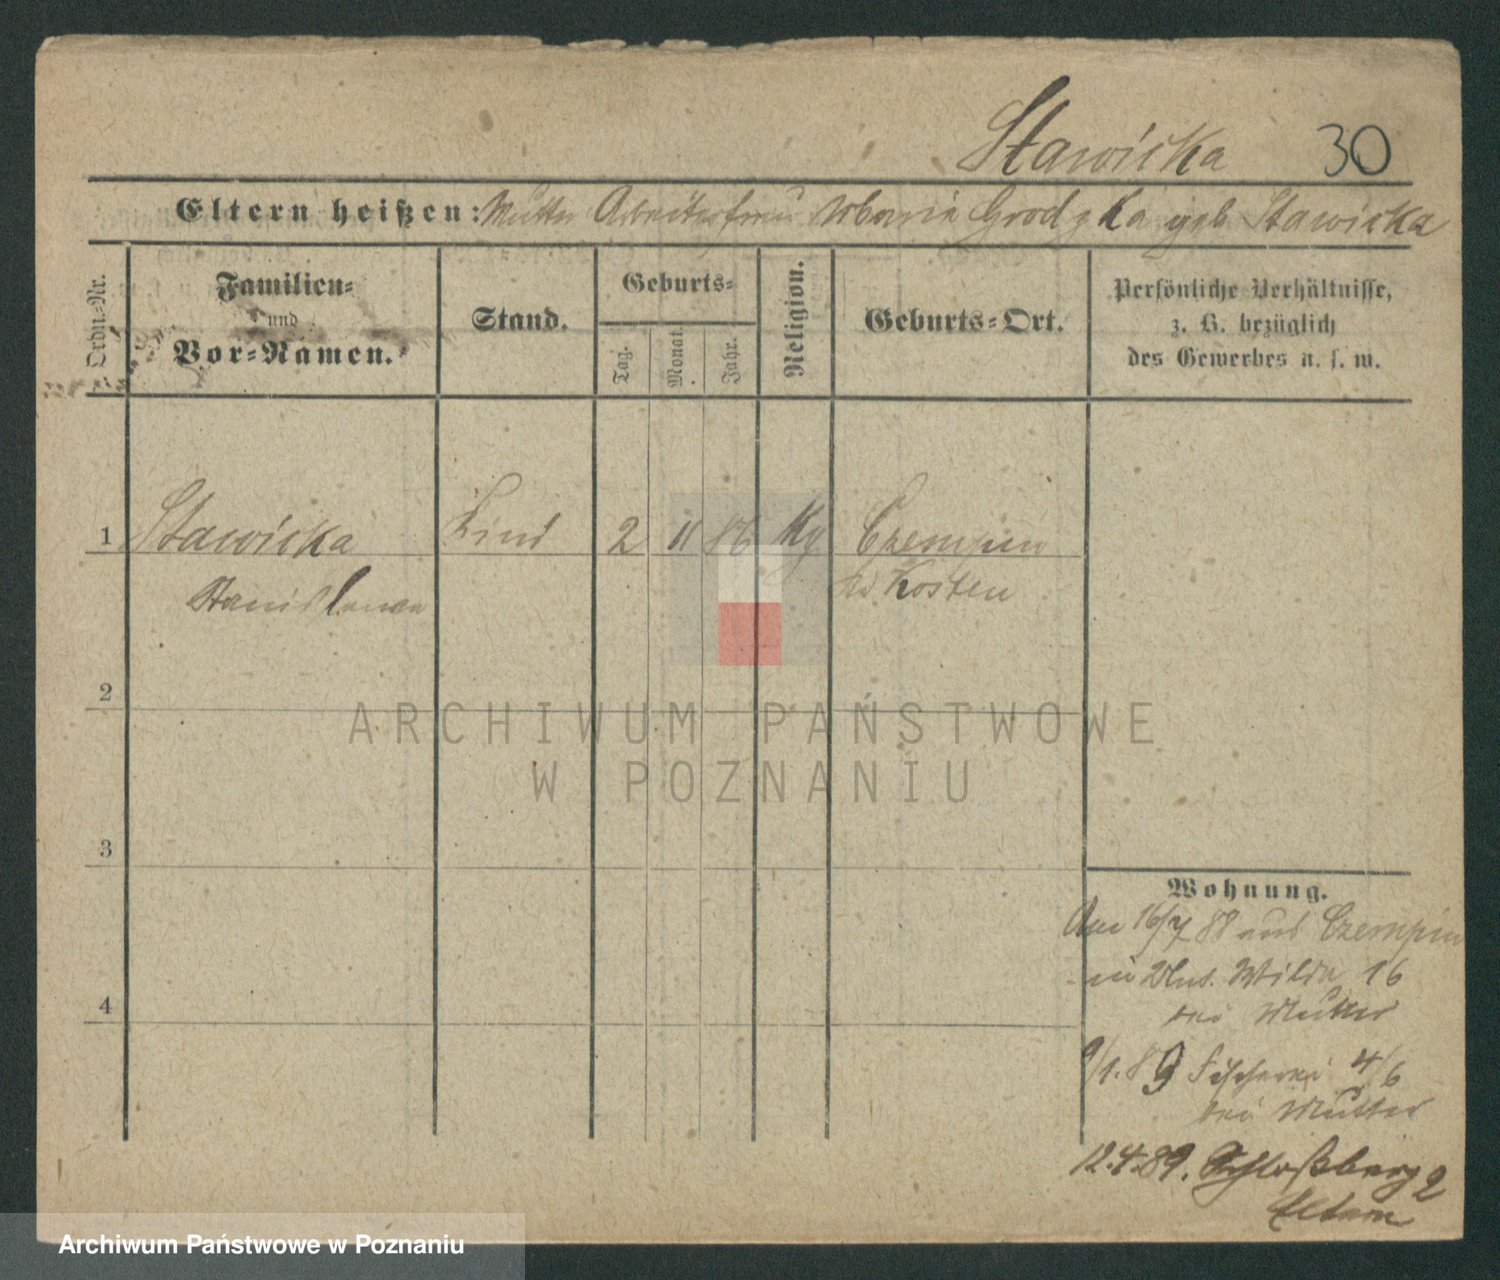 Stawicka 30
Eltern heißen: Mutter Arbeiterfrau Maria Grodzka geb Stawicka
Ordn.-Nr.
Familien-
und
Vor-Namen.
Stand.
Geburts-
Tag.
Monat.
Jahr.
Religion.
Geburts-Ort.
Persönliche Verhältnisse,
z. B. bezüglich
des Gewerbes u. s. w.
1 Stawicka Kind 2 11 86 Czempin
Stanislawa Kosten
2
ARCHIWUM PAŃSTWOWE
W POZNANIU
3
Wohnung.
Am 16/7 88 aus Czempin
in Wilda 16
bei Mutter
4
9/1. 89 Fischerei 4/6
bei Mutter
12.4.89. Schloßberg 2
Eltern
Archiwum Państwowe w Poznaniu